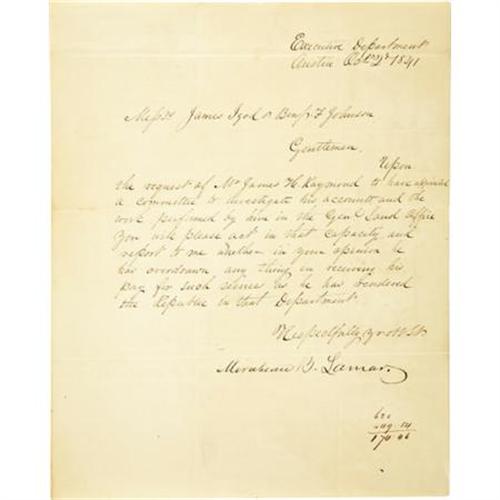 Executive Department
Austin Octr 2d 1841
Messrs James Izod & Benj. F Johnson
Gentlemen,
Upon
the request of Mr James H. Raymond to have appointed
a committee to investigate his accounts and the
work performed by him in the Genl Land Office
you will please act in that capacity and
report to me whether in your opinion he
has overdrawn any thing in receiving his
pay for such services as he has rendered
the Republic in that Department
Respectfully Yr Obt St.
Mirabeau B. Lamar.
620
449.54
170.46